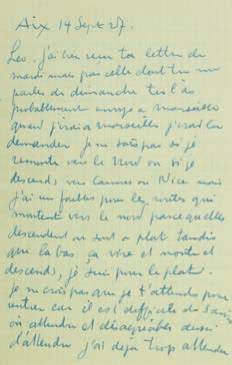 Aix 14 Sept 27.
Leo. j'ai bien reçu ta lettre de
mardi mais pas celle dont tu me
parles de dimanche tu l'as
probablement envoyé a marseille
quand j'irai a marseille j'irai la
demander je ne sais pas si je
remonte vers le Nord ou si je
descends, vers cannes ou Nice mais
j'ai un faible pour les routes qui
montent vers le nord parce quelles
descendent ou sont a plat tandis
que la bas ça vire et monte et
descends, je suis pour le plat.
je ne crois pas que je t'attende pour
rentrer car il est difficile de savoir
où attendre et désagréable aussi
d'attendre j'ai déjà trop attendu